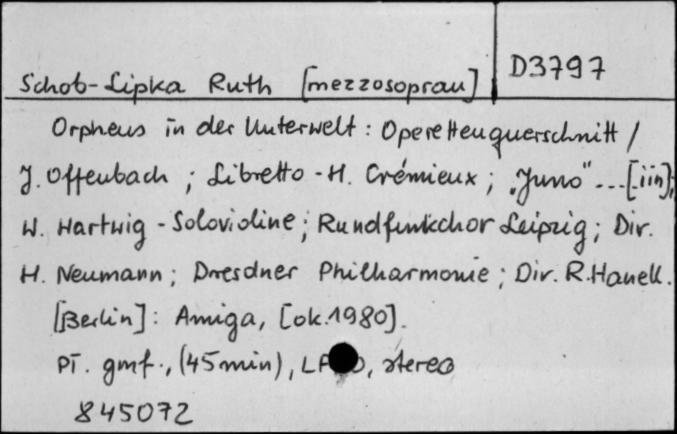 Schob-Lipka Ruth [mezzosopran]
D3797
Orpheus in der Unterwelt : Operettenquerschnitt /
J. Offenbach ; Libretto - H. Crémieux ; „Juno" ... [iin];
W. Hartwig - Solovioline ; Rundfunkchor Leipzig ; Dir.
H. Neumann ; Dresdner Philharmonie ; Dir. R. Hanell.
[Berlin] : Amiga, [ok. 1980].
PŁ. gmf., (45 min), stereo
845072